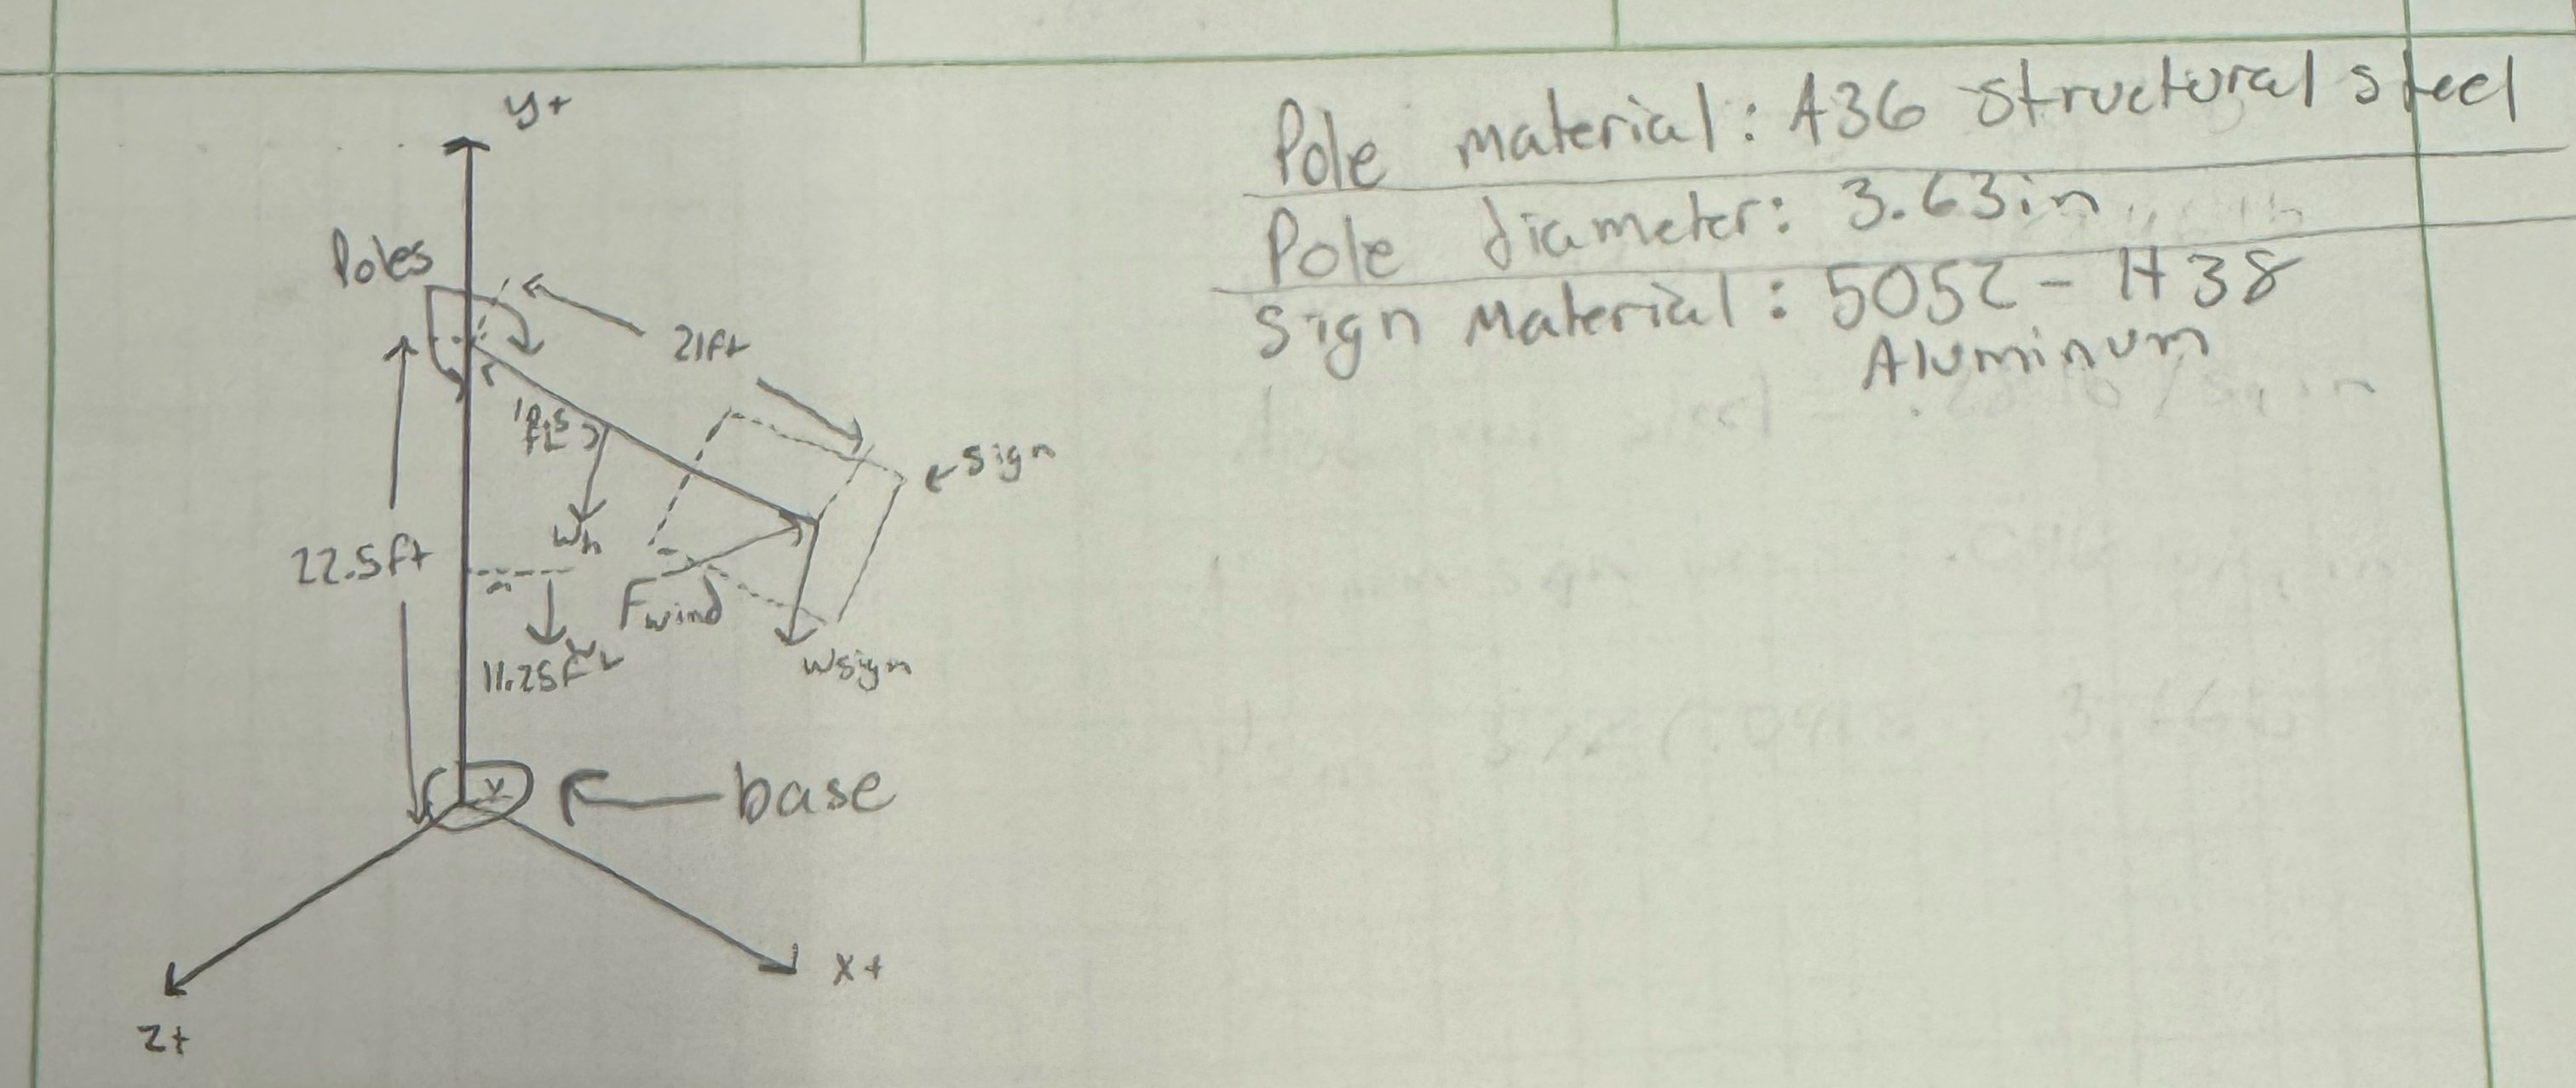 y+
Poles
21ft
← sign
Wh
22.5ft
Fwind
11.25ft
Wsign
base
x+
z+
Pole material: A36 structural steel
Pole diameter: 3.63in
Sign Material: 5052-H38
Aluminum